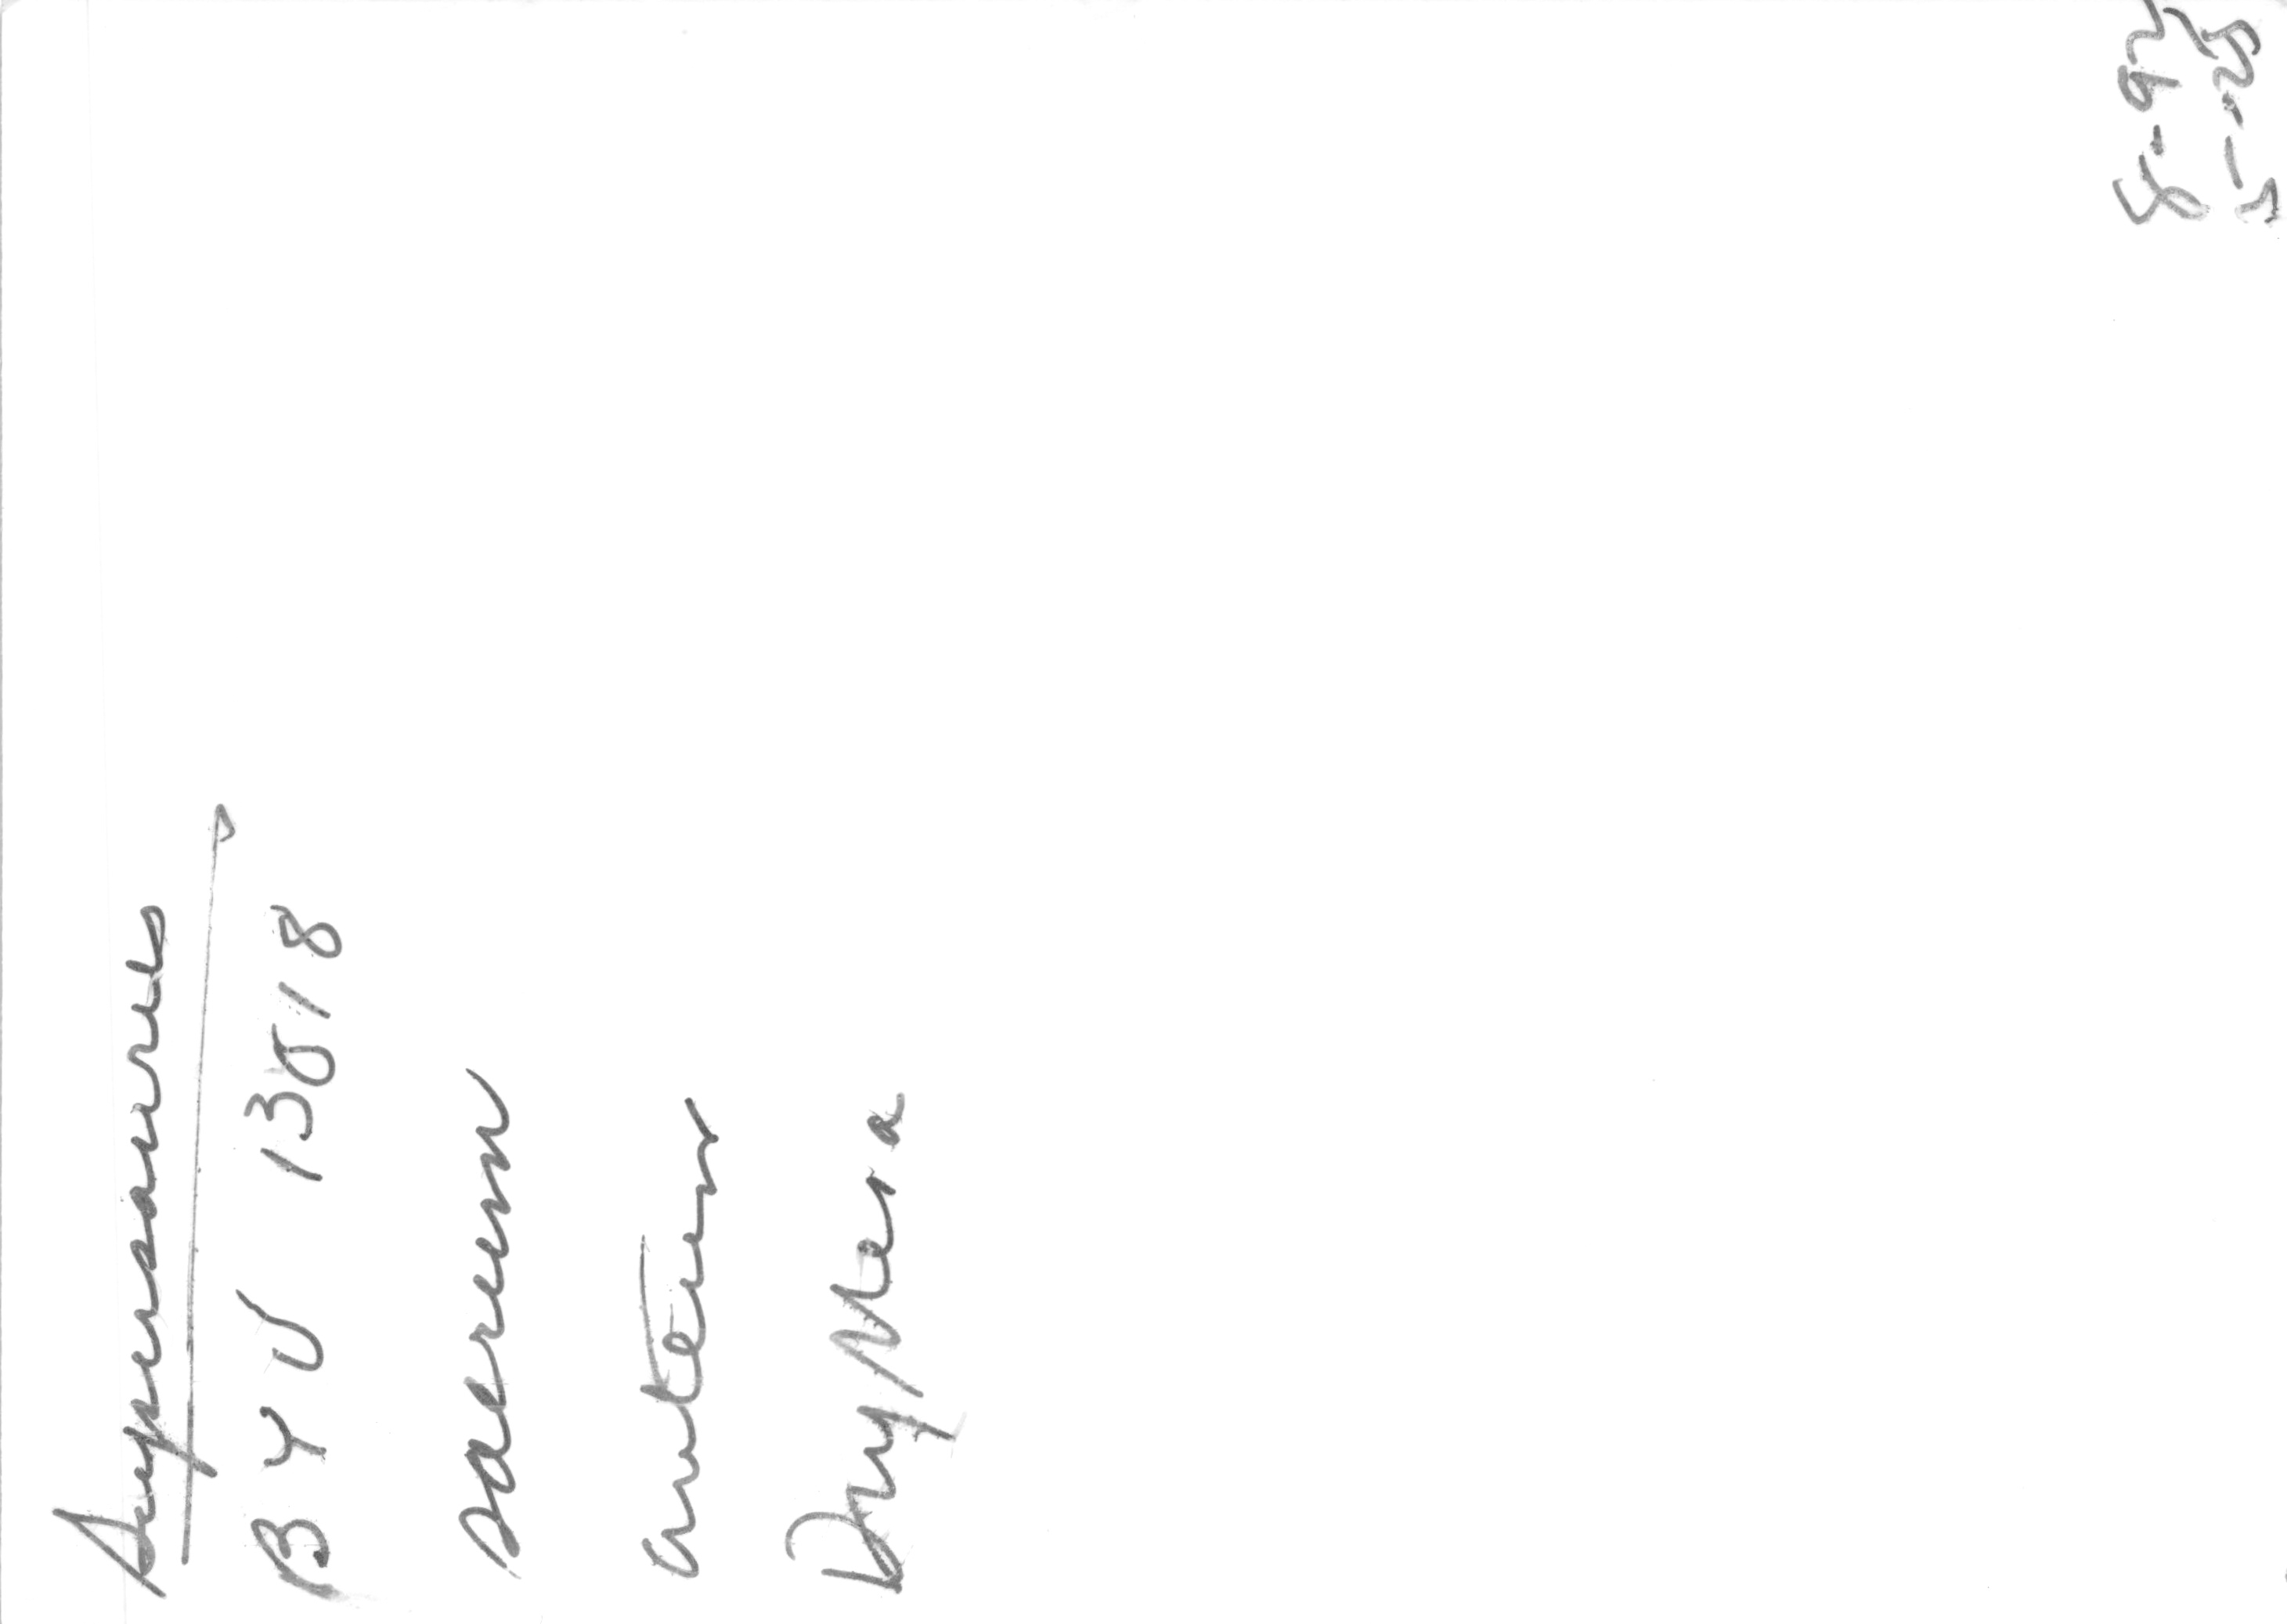 Supersaurus
BYU 13018
sacrum
anterior
Dry Mesa
8-92
5-25